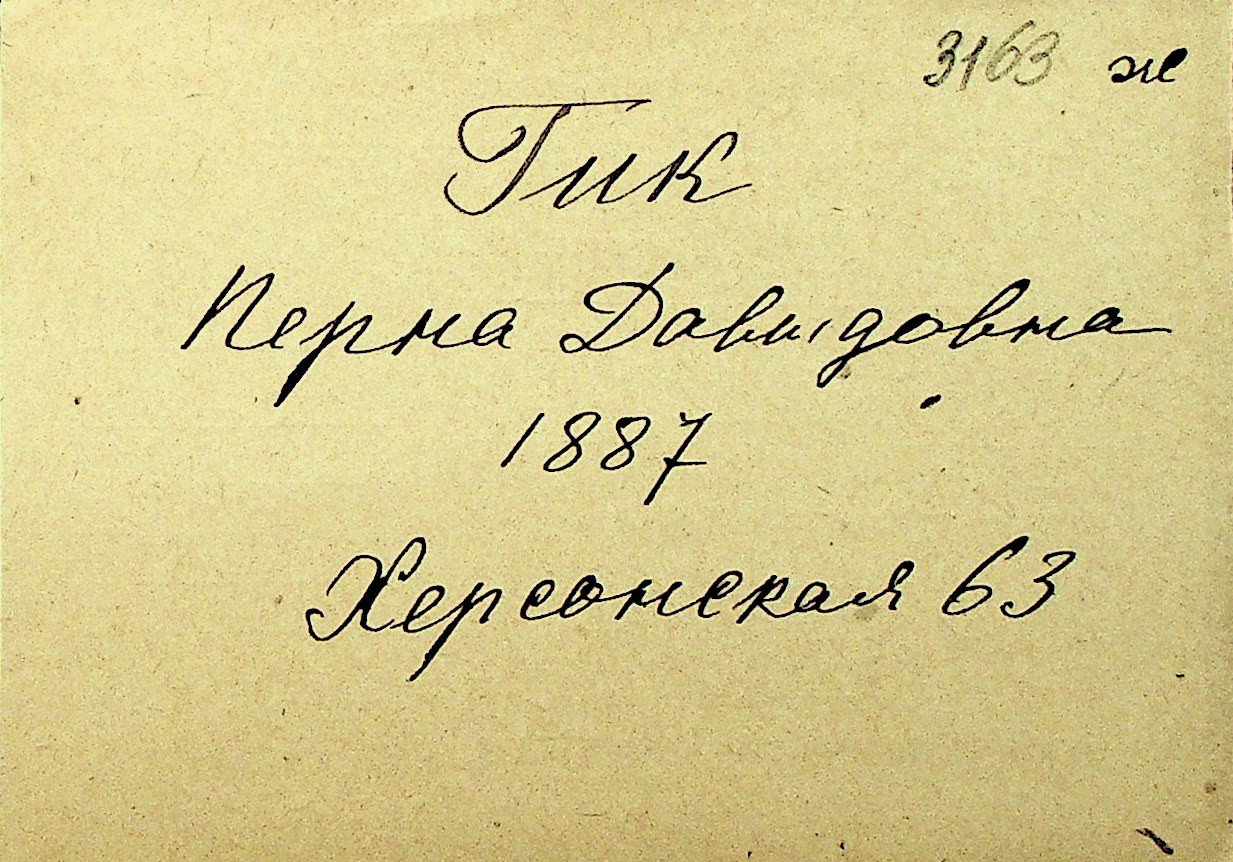 3163 ж
Гик
Перма Давыдовна
1887
Херсонская 63